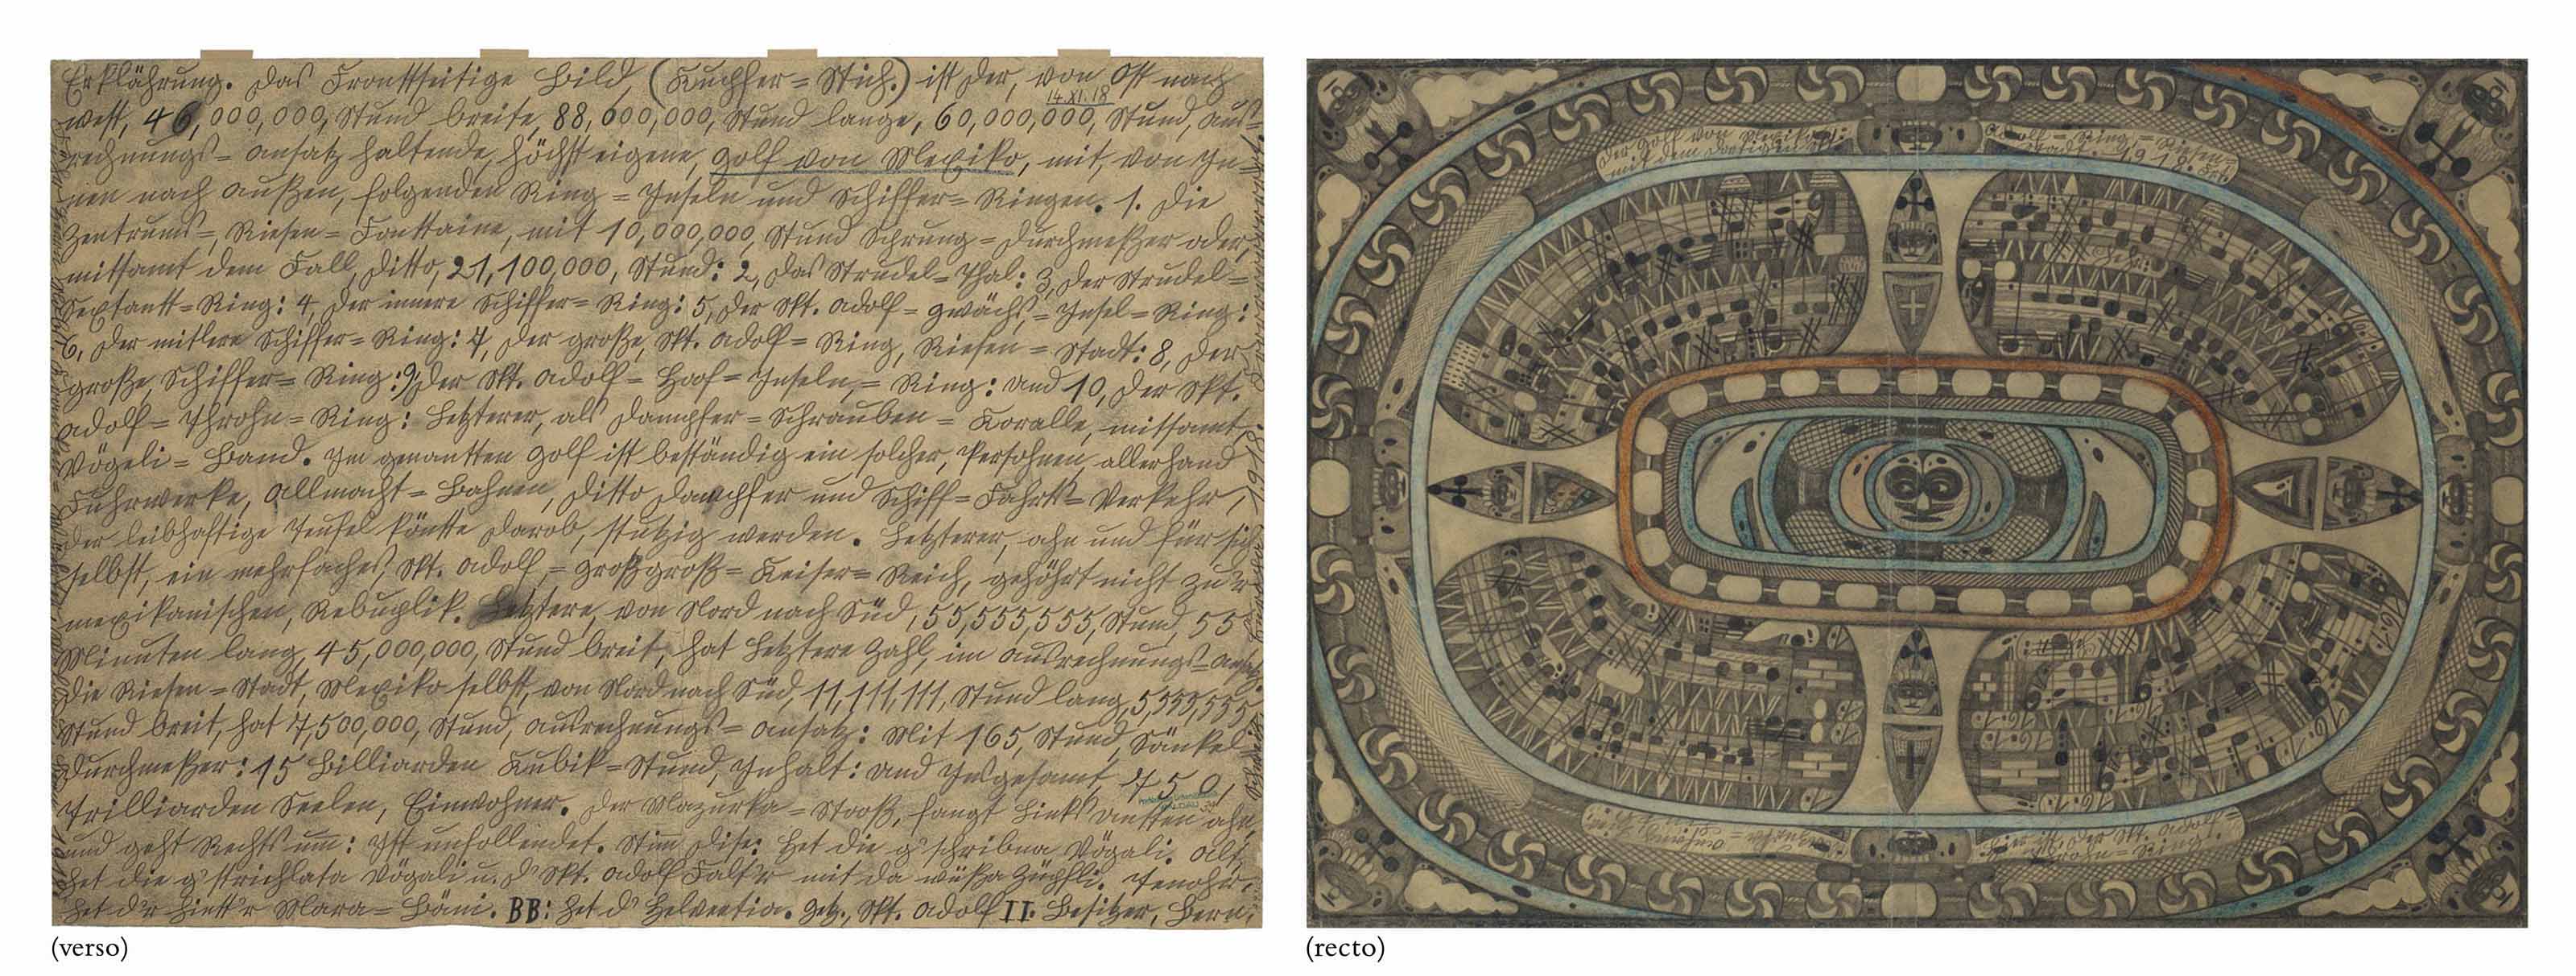 Erklährung. Das Frontseitige Bild, (Kuchfer=Stich.) ist der, von Ost nach
14.XI.18
west, 46,000,000, Stund breite, 88,000,000, Stund lange, 60,000,000, Stund, Aus=
rechnungs=ansatz haltende, höchst eigene, Golf von Mexiko, mit, von In=
nen nach außen, folgenden Ring=Inseln und Schiffer=Ringen. 1. Die
Zentrums=, Riesen=Fonttaine, mit 10,000,000, Stund Sprung=Durchmeßer oder,
mittsamt dem Fall, Ditto, 21,100,000, Stund: 2, Das Strudel=Thal: 3, Der Strudel=
Sextantt=Ring: 4, Der innere Schiffer=Ring: 5, Der Skt. Adolf=gwächs,=Insel=Ring:
6, Der mittlere Schiffer=Ring: 7, Der große, Skt. Adolf=Ring, Riesen=Stadt: 8, Der
große, Schiffer=Ring: 9, Der Skt. Adolf=Hoof=Inseln,=Ring: und 10, Der Skt.
Adolf=Throhn=Ring: Letzterer, als Dampfer=Schrauben=Koralle, mittsamt
Vögeli=Band. Im genantten Golf ist beständig ein solcher, Persohnen, allerhand
Fuhrwerke, Allmacht=Bahnen, Ditto Dampfer und Schiff=Fahrts=Verkehr,
Der leibhaftige Teufel köntte darob, stutzig werden. Letzterer, ahn und für sich
selbst, ein mehrfaches, Skt. Adolf,=großgroß=Keiser=Reich, gehöhrt nicht zu'r
mexikanischen, Rebuplik. Letztere, von Nord nach Süd, 55,555,555, Stund, 55
Minuten lang, 45,000,000, Stund breit, hat Letztere Zahl, im Ausrechnungs=
Die Riesen=Stadt, Mexiko selbst, von Nord nach Süd, 11,111,111, Stund lang, 5,555,555
Stund breit, hat 7,500,000, Stund, Ausrechnungs=ansatz: Mit 165, Stund, Sänkel=
Durchmeßer: 15 Billiarden Kubik=Stund, Inhalt: und Insgesamt, 750,
Trilliarden Seelen, Einwohner. Der Mazurka=Stooß, fangt Links untten ahn,
und geht Rechts um: Ist unfollendet. Stim Dise: Het die g'schribna Vögali. Alt,
Het die g'strichlata Vögali u. d'Skt. Adolf Falt'r mit da wüßa Züpfli. Tenohr,
Het d'r hintt'r Mara=Bäni. BB: Het d'Helveetia. Gez., Skt. Adolf II. Besitzer, Bern.
(verso)
Der Golf von Mexiko:
mit dem dortigen Skt.
Adolf=Ring=Riesen=
Stadt. 1918.
(recto)